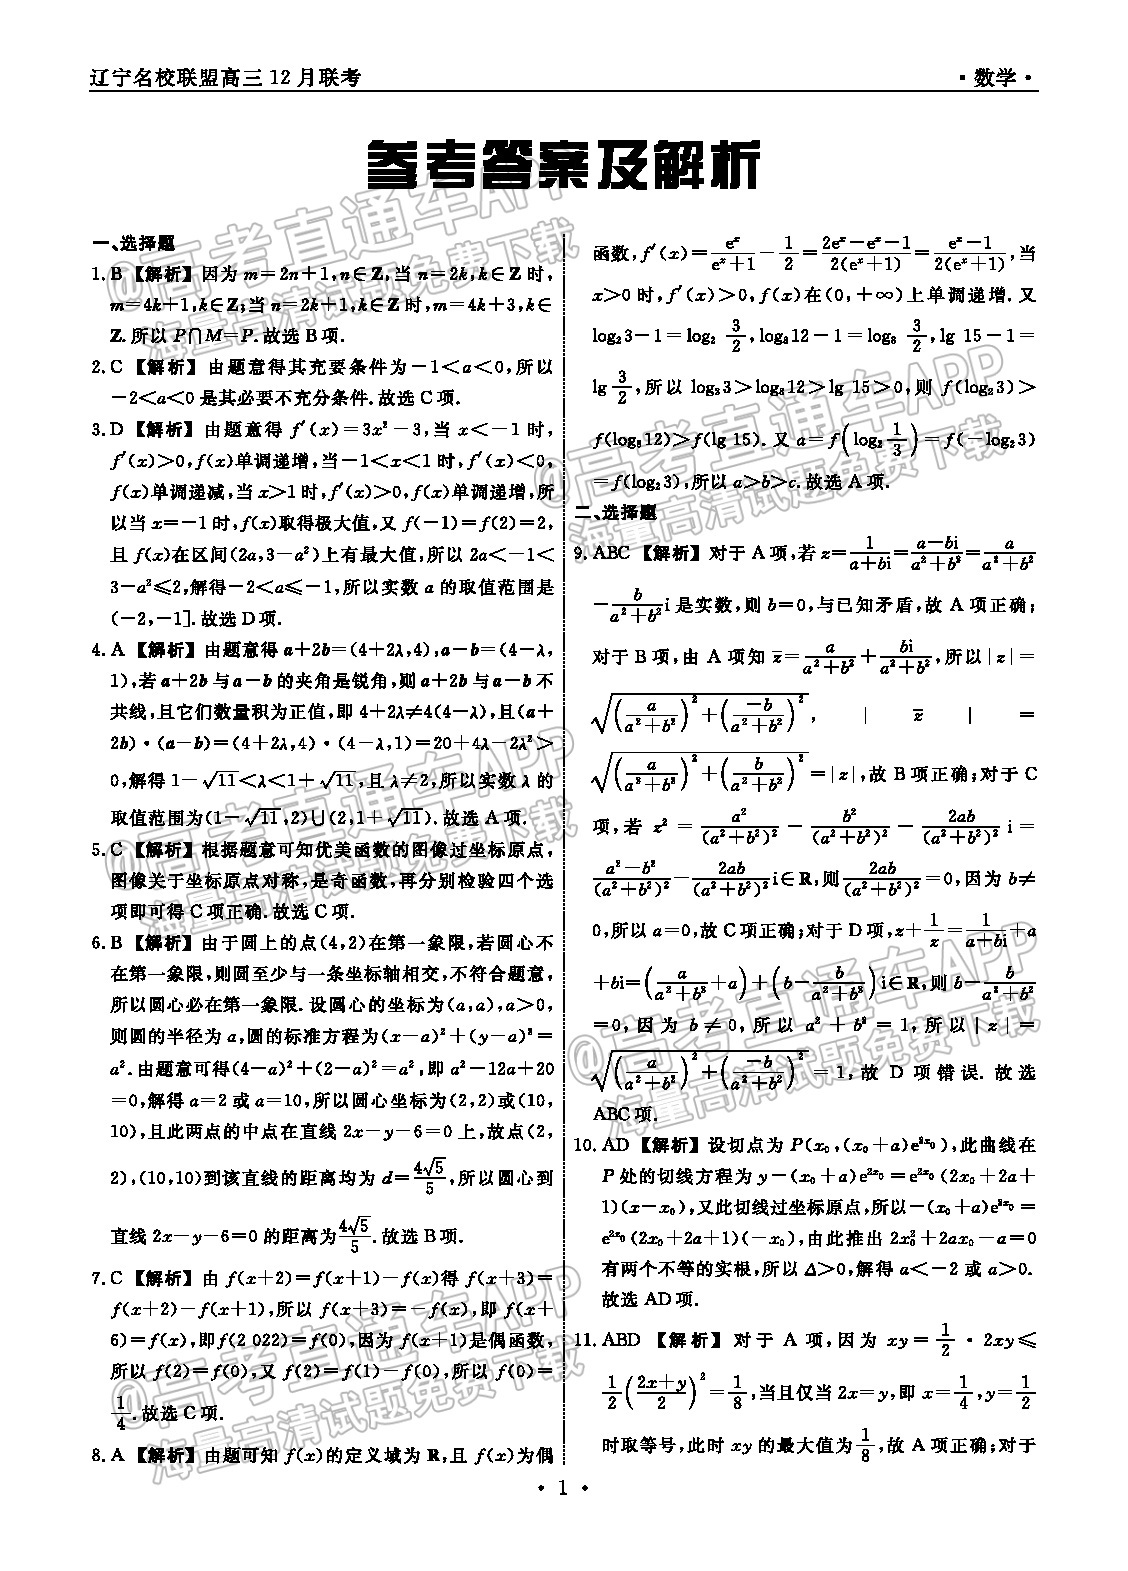 辽宁名校联盟高三12月联考
·数学·
参考答案及解析
一、选择题
1. B 【解析】因为 m=2n+1,n∈Z,当 n=2k,k∈Z 时,
m=4k+1,k∈Z;当 n=2k+1,k∈Z时,m=4k+3,k∈
Z. 所以 P∩M=P. 故选 B 项.
2. C 【解析】由题意得其充要条件为-1<a<0,所以
-2<a<0 是其必要不充分条件. 故选 C 项.
3. D 【解析】由题意得 f′(x)=3x²-3,当 x<-1 时,
f′(x)>0,f(x)单调递增,当-1<x<1 时,f′(x)<0,
f(x)单调递减,当 x>1 时,f′(x)>0,f(x)单调递增,所
以当 x=-1 时,f(x)取得极大值,又 f(-1)=f(2)=2,
且 f(x)在区间(2a,3-a²)上有最大值,所以 2a<-1<
3-a²≤2,解得-2<a≤-1,所以实数 a 的取值范围是
(-2,-1]. 故选 D 项.
4. A 【解析】由题意得 a+2b=(4+2λ,4),a-b=(4-λ,
1),若 a+2b 与 a-b 的夹角是锐角,则 a+2b 与 a-b 不
共线,且它们数量积为正值,即 4+2λ≠4(4-λ),且(a+
2b)·(a-b)=(4+2λ,4)·(4-λ,1)=20+4λ-2λ²>
0,解得 1-√11<λ<1+√11,且 λ≠2,所以实数 λ 的
取值范围为(1-√11,2)∪(2,1+√11). 故选 A 项.
5. C 【解析】根据题意可知优美函数的图像过坐标原点,
图像关于坐标原点对称,是奇函数,再分别检验四个选
项即可得 C 项正确. 故选 C 项.
6. B 【解析】由于圆上的点(4,2)在第一象限,若圆心不
在第一象限,则圆至少与一条坐标轴相交,不符合题意,
所以圆心必在第一象限. 设圆心的坐标为(a,a),a>0,
则圆的半径为 a,圆的标准方程为(x-a)²+(y-a)²=
a². 由题意可得(4-a)²+(2-a)²=a²,即 a²-12a+20
=0,解得 a=2 或 a=10,所以圆心坐标为(2,2)或(10,
10),且此两点的中点在直线 2x-y-6=0 上,故点(2,
2),(10,10)到该直线的距离均为 d=4√5/5,所以圆心到
直线 2x-y-6=0 的距离为4√5/5. 故选 B 项.
7. C 【解析】由 f(x+2)=f(x+1)-f(x)得 f(x+3)=
f(x+2)-f(x+1),所以 f(x+3)=-f(x),即 f(x+
6)=f(x),即f(2 022)=f(0),因为 f(x+1)是偶函数,
所以 f(2)=f(0),又 f(2)=f(1)-f(0),所以 f(0)=
1/4. 故选 C 项.
8. A 【解析】由题可知 f(x)的定义域为 R,且 f(x)为偶
函数,f′(x)=eˣ/(eˣ+1)-1/2=(2eˣ-eˣ-1)/(2(eˣ+1))=(eˣ-1)/(2(eˣ+1)),当
x>0 时,f′(x)>0,f(x)在(0,+∞)上单调递增. 又
log₂3-1=log₂ 3/2,log₈12-1=log₈ 3/2,lg 15-1=
lg 3/2,所以 log₂3>log₈12>lg 15>0,则 f(log₂3)>
f(log₈12)>f(lg 15). 又 a=f(log₂ 1/3)=f(-log₂3)
=f(log₂3),所以 a>b>c. 故选 A 项.
二、选择题
9. ABC 【解析】对于 A 项,若 z=1/(a+bi)=(a-bi)/(a²+b²)=a/(a²+b²)
-b/(a²+b²)i 是实数,则 b=0,与已知矛盾,故 A 项正确;
对于 B 项,由 A 项知 z̄=a/(a²+b²)+bi/(a²+b²),所以|z|=
√((a/(a²+b²))²+(-b/(a²+b²))²),|z̄|=
√((a/(a²+b²))²+(b/(a²+b²))²)=|z|,故 B 项正确;对于 C
项,若 z²=a²/(a²+b²)²-b²/(a²+b²)²-2ab/(a²+b²)²i=
(a²-b²)/(a²+b²)²-2ab/(a²+b²)²i∈R,则2ab/(a²+b²)²=0,因为 b≠
0,所以 a=0,故 C 项正确;对于 D 项,z+1/z=1/(a+bi)+a
+bi=(a/(a²+b²)+a)+(b-b/(a²+b²))i∈R,则 b-b/(a²+b²)
=0,因为 b≠0,所以 a²+b²=1,所以|z|=
√((a/(a²+b²))²+(-b/(a²+b²))²)=1,故 D 项错误. 故选
ABC 项.
10. AD 【解析】设切点为 P(x₀,(x₀+a)e^(2x₀)),此曲线在
P 处的切线方程为 y-(x₀+a)e^(2x₀)=e^(2x₀)(2x₀+2a+
1)(x-x₀),又此切线过坐标原点,所以-(x₀+a)e^(2x₀)=
e^(2x₀)(2x₀+2a+1)(-x₀),由此推出 2x₀²+2ax₀-a=0
有两个不等的实根,所以 Δ>0,解得 a<-2 或 a>0.
故选 AD 项.
11. ABD 【解析】对于 A 项,因为 xy=1/2·2xy≤
1/2((2x+y)/2)²=1/8,当且仅当 2x=y,即 x=1/4,y=1/2
时取等号,此时 xy 的最大值为1/8,故 A 项正确;对于
· 1 ·
@高考直通车APP
海量高清试题免费下载
@高考直通车APP
海量高清试题免费下载
@高考直通车APP
海量高清试题免费下载
@高考直通车APP
海量高清试题免费下载
@高考直通车APP
海量高清试题免费下载